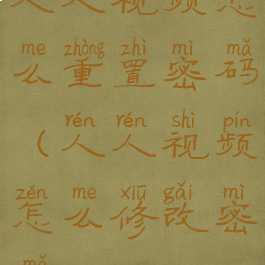 人人视频怎
me zhòng zhì mì mǎ
么重置密码
rén rén shì pín
（人人视频
zěn me xiū gǎi mì
怎么修改密
mǎ